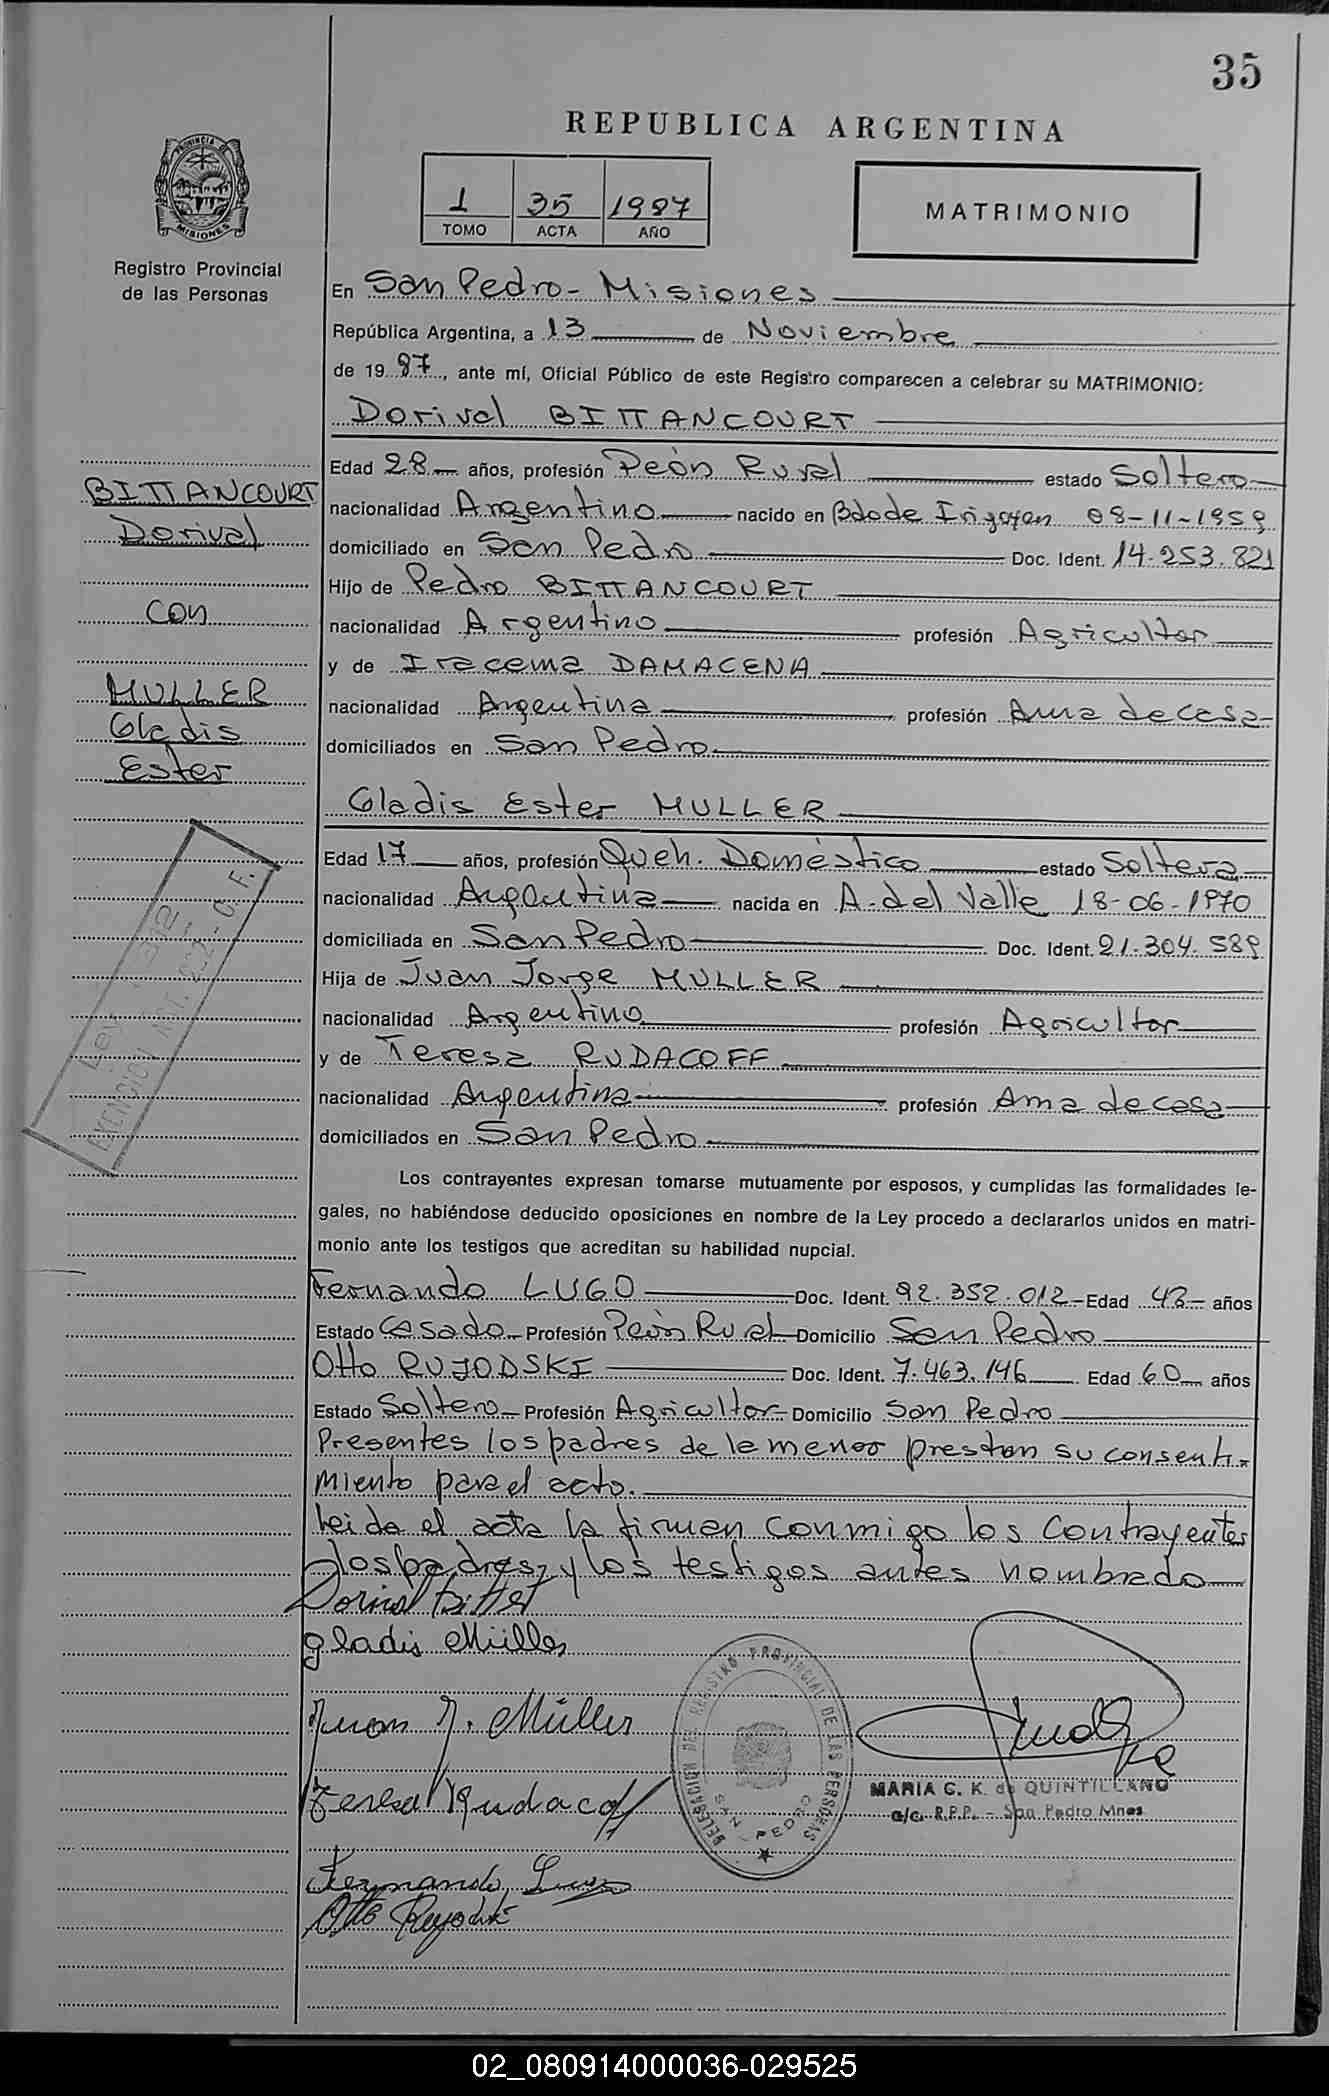 35
REPUBLICA ARGENTINA
1 35 1987
TOMO ACTA AÑO
MATRIMONIO
PROVINCIA DE MISIONES
Registro Provincial
de las Personas
En San Pedro - Misiones
República Argentina, a 13 de Noviembre
de 1987, ante mí, Oficial Público de este Registro comparecen a celebrar su MATRIMONIO:
Dorival BITTANCOURT
BITTANCOURT
Dorival
con
MULLER
Gladis
Ester
Edad 28 años, profesión Peón Rural estado Soltero
nacionalidad Argentino nacido en Bdo de Irigoyen 08-11-1959
domiciliado en San Pedro Doc. Ident. 14.253.821
Hijo de Pedro BITTANCOURT
nacionalidad Argentino profesión Agricultor
y de Iracema DAMACENA
nacionalidad Argentina profesión Ama de casa
domiciliados en San Pedro
Gladis Ester MULLER
Edad 17 años, profesión Queh. Doméstico estado Soltera
nacionalidad Argentina nacida en A. del Valle 18-06-1970
domiciliada en San Pedro Doc. Ident. 21.304.589
Hija de Juan Jorge MULLER
nacionalidad Argentino profesión Agricultor
y de Teresa RUDACOFF
nacionalidad Argentina profesión Ama de casa
domiciliados en San Pedro
Ley
EXENCION ART.
Los contrayentes expresan tomarse mutuamente por esposos, y cumplidas las formalidades le-
gales, no habiéndose deducido oposiciones en nombre de la Ley procedo a declararlos unidos en matri-
monio ante los testigos que acreditan su habilidad nupcial.
Fernando LUGO Doc. Ident. 92.352.012 Edad 43 años
Estado Casado Profesión Peón Rural Domicilio San Pedro
Otto RUJODSKI Doc. Ident. 7.463.146 Edad 60 años
Estado Soltero Profesión Agricultor Domicilio San Pedro
Presentes los padres de la menor prestan su consenti-
miento para el acto.
Leida el acta la firman conmigo los contrayentes
los padres, y los testigos antes nombrado
Dorival Bittet
gladis Müller
Juan J. Müller
Teresa Rudacoff
Fernando Lugo
Otto Ruyodski
DELEGACION DEL REGISTRO PROVINCIAL DE LAS PERSONAS
SAN PEDRO
MARIA C. K. de QUINTILLANO
a/c. R.P.P. - San Pedro Mnes
02_080914000036-029525